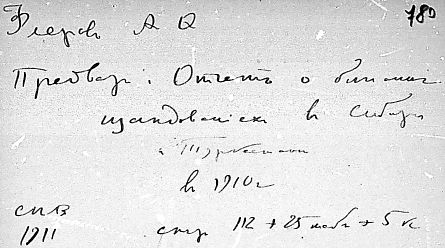 780
Флеров А Ф
Предвар. Отчетъ о ботанич.
изслѣдованіяхъ в Сибири
и Туркестан
в 1910 г
СПБ
1911 стр 112 + 25 табл + 5 к